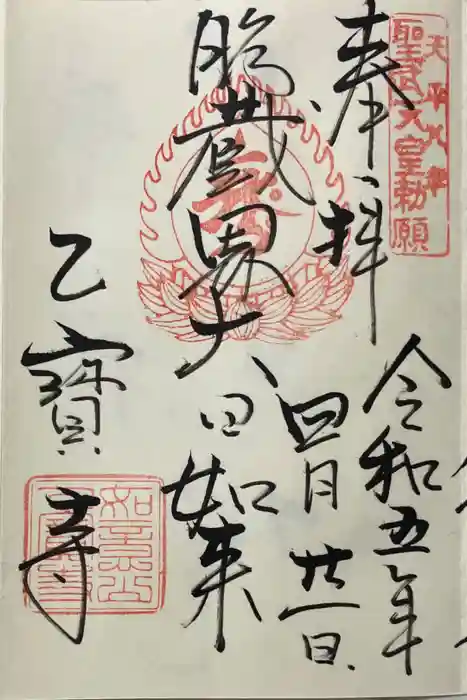 天平八年
聖武天皇勅願
奉拝
令和五年
四月廿一日
胎蔵界大日如来
乙寶寺